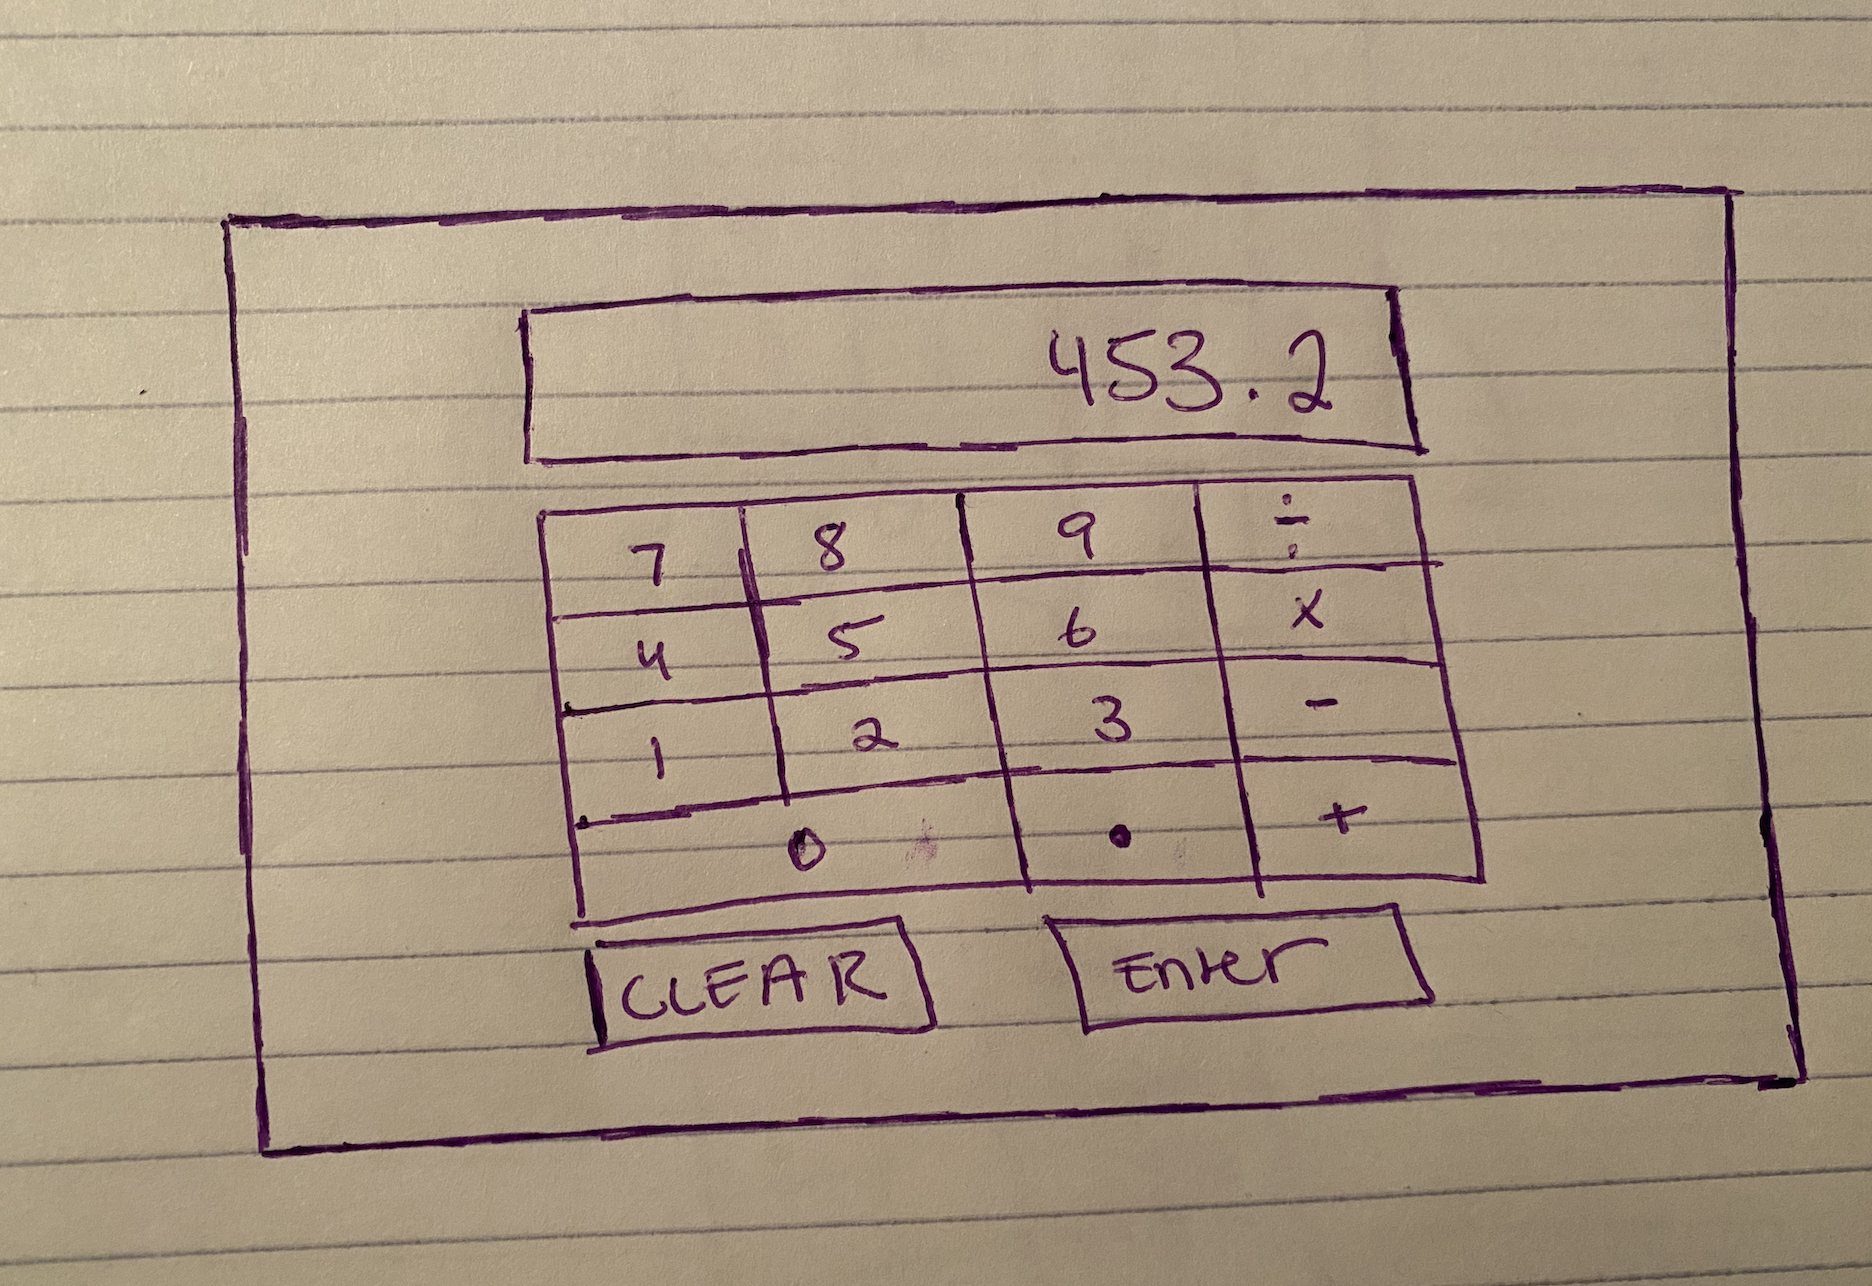 453.2
7 8 9 ÷
4 5 6 x
1 2 3 -
0 . +
CLEAR Enter